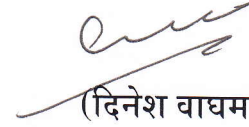 (दिनेश वाघम